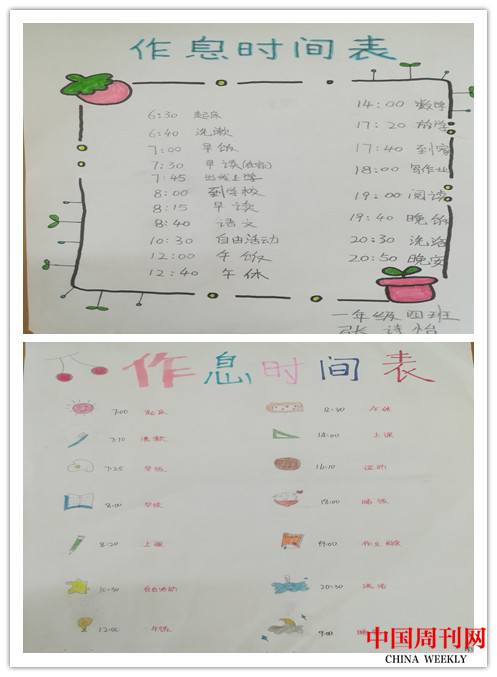 作息时间表
6:30 起床
6:40 洗漱
7:00 早饭
7:30 早读(在家)
7:45 出发上学
8:00 到学校
8:15 早读
8:40 语文
10:30 自由活动
12:00 午饭
12:40 午休
14:00 数学
17:20 放学
17:40 到家
18:00 写作业
19:00 阅读
19:40 晚饭
20:30 洗浴
20:50 晚安
一年级四班
张诗怡
作息时间表
7:00 起床
7:10 洗漱
7:25 早饭
8:00 早读
8:20 上课
10:30 自由活动
12:00 午饭
12:30 午休
14:00 上课
16:10 运动
18:00 晚饭
19:00 作业
20:30 洗浴
9:00
中国周刊网
CHINA WEEKLY